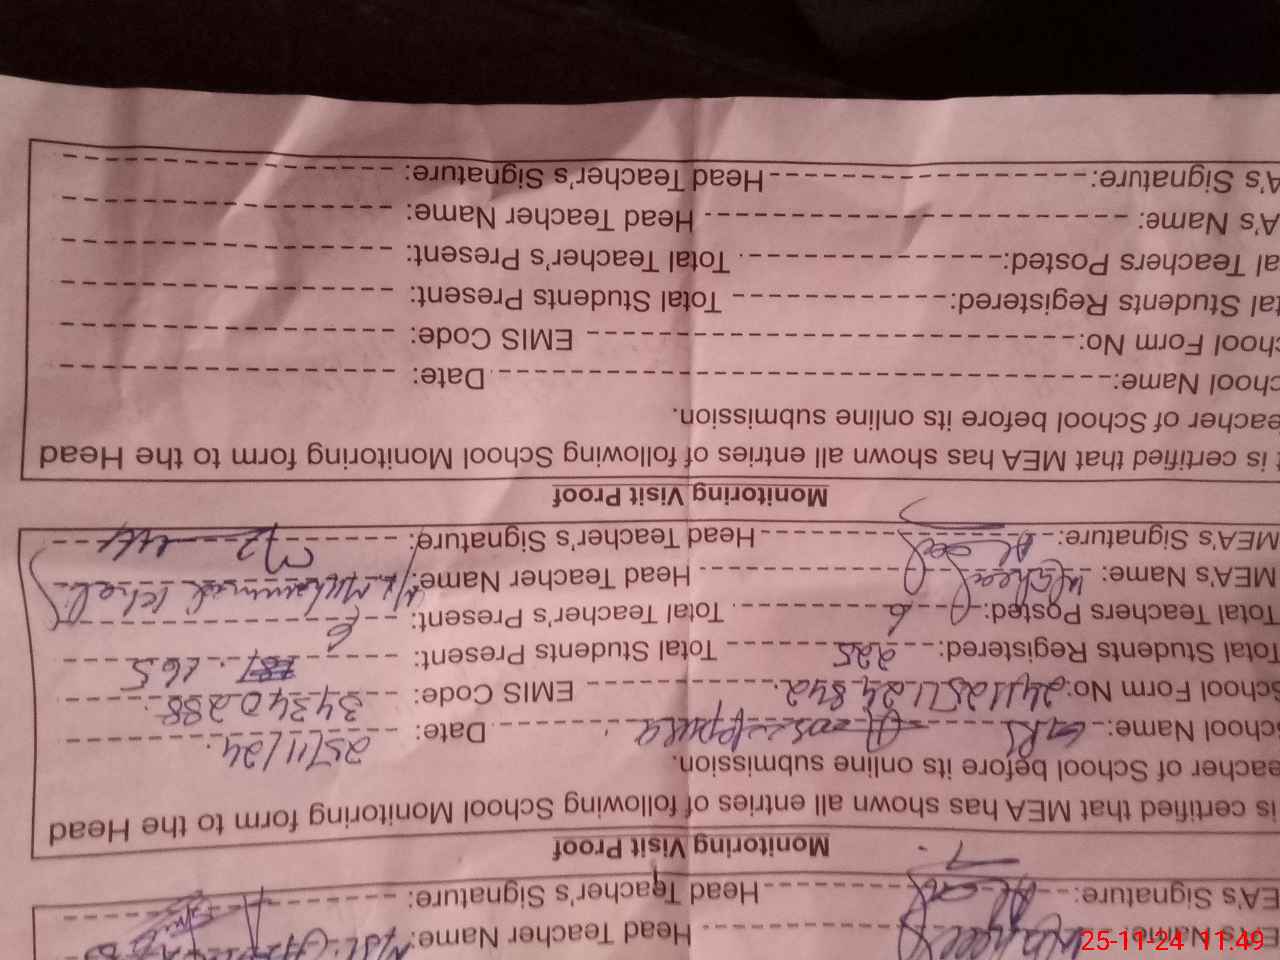 EA's Name: Waheed Head Teacher Name:
EA's Signature: Head Teacher's Signature:
Monitoring Visit Proof
is certified that MEA has shown all entries of following School Monitoring form to the Head
eacher of School before its online submission.
School Name: Date: 25/11/24
School Form No: EMIS Code: 34340288
Total Students Registered: 225 Total Students Present: 165
Total Teachers Posted: 6 Total Teacher's Present: 6
MEA's Name: Waheed Head Teacher Name: Muhammad
MEA's Signature: Head Teacher's Signature:
Monitoring Visit Proof
t is certified that MEA has shown all entries of following School Monitoring form to the Head
eacher of School before its online submission.
chool Name: Date:
chool Form No: EMIS Code:
tal Students Registered: Total Students Present:
al Teachers Posted: Total Teacher's Present:
A's Name: Head Teacher Name:
A's Signature: Head Teacher's Signature:
25-11-24 11:49